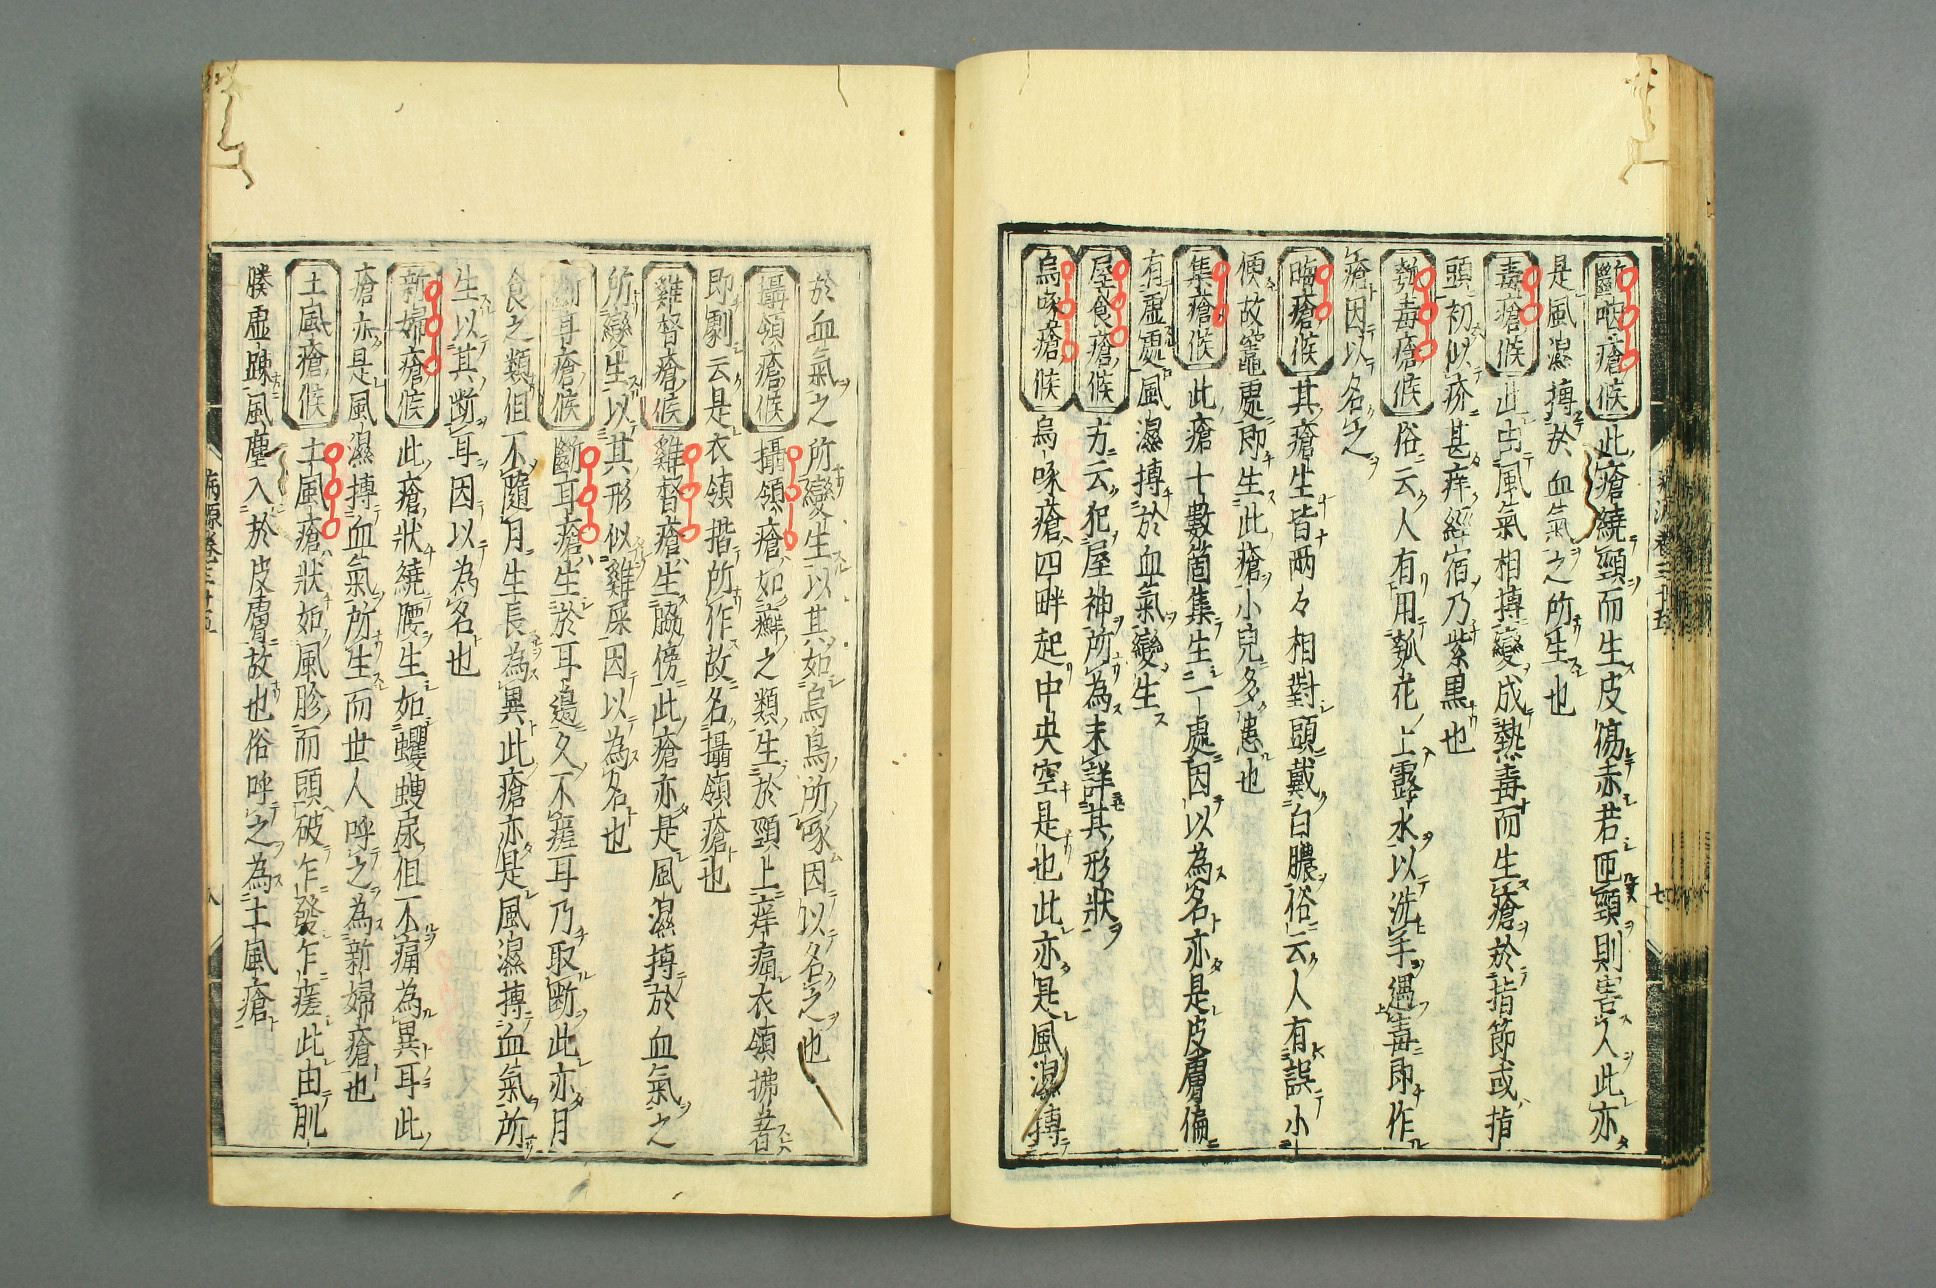 斷咽瘡候 此瘡繞頸而生皮傷赤若匝頸則害人此亦
是風濕搏於血氣之所生也
毒瘡候 此由風氣相搏變成熱毒而生瘡於指節或指
頭初似疥甚痒經宿乃紫黒也
瓠毒瘡候 俗云人有用瓠花上露水以洗手遇毒即作
瘡因以名之
晦瘡候 其瘡生皆两々相對頭戴白膿俗云人有誤小
便故竈處即生此瘡小兒多患也
集瘡候 此瘡十數箇集生一處因以為名亦是皮膚偏
有虛處風濕搏於血氣變生
屋食瘡候 方云犯屋神所為未詳其形狀
烏啄瘡候 烏啄瘡四畔起中央空是也此亦是風濕搏
於血氣之所變生以其如烏鳥所啄因以名之也
攝領瘡候 攝領瘡如癬之類生於頸上痒痛衣領拂著
即劇云是衣領揩所作故名攝領瘡也
雞督瘡候 雞督瘡生脇傍此瘡亦是風濕搏於血氣之
所變生以其形似雞屎因以為名也
斷耳瘡候 斷耳瘡生於耳邊久不瘥耳乃取断此亦月
食之類但不隨月生長為異此瘡亦是風濕搏血氣所
生以其断耳因以為名也
新婦瘡候 此瘡狀繞腰生如蠼螋尿但不痛為異耳此
瘡亦是風濕搏血氣所生而世人呼之為新婦瘡也
土風瘡候 土風瘡狀如風胗而頭破乍發乍瘥此由肌
腠虛踈風塵入於皮膚故也俗呼之為土風瘡
病源卷三十五
八
七